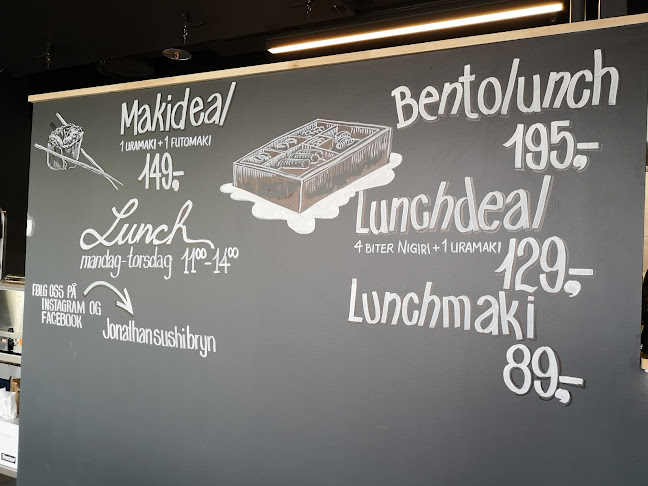 Makideal
1 URAMAKI + 1 FUTOMAKI
149,-
Lunch
mandag-torsdag 11⁰⁰-14⁰⁰
FØLG OSS PÅ
INSTAGRAM OG
FACEBOOK
Jonathansushibryn
Bentolunch
195,-
Lunchdeal
4 BITER NIGIRI + 1 URAMAKI
129,-
Lunchmaki
89,-